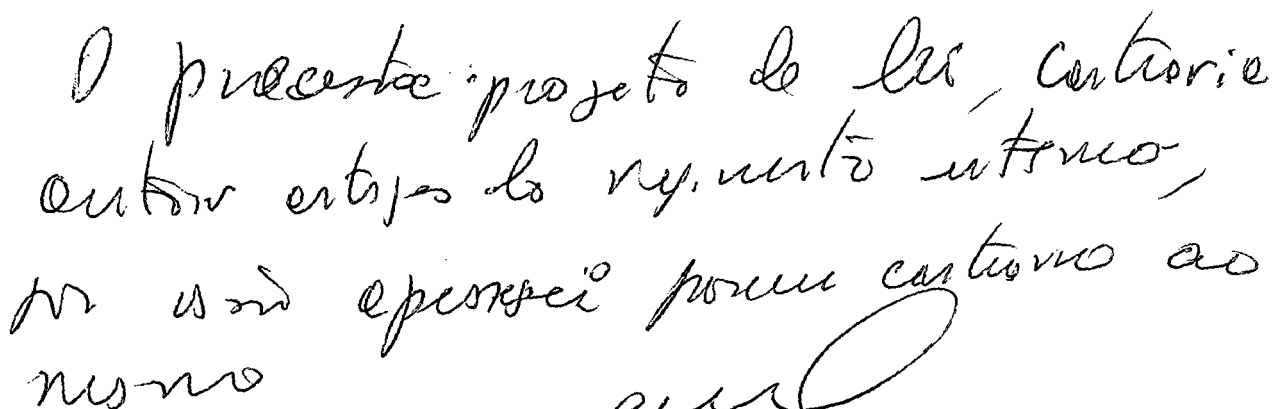 O presente projeto de lei, contraria
outros artigos do regimento interno,
por isso apressei porem contrario ao
mesmo